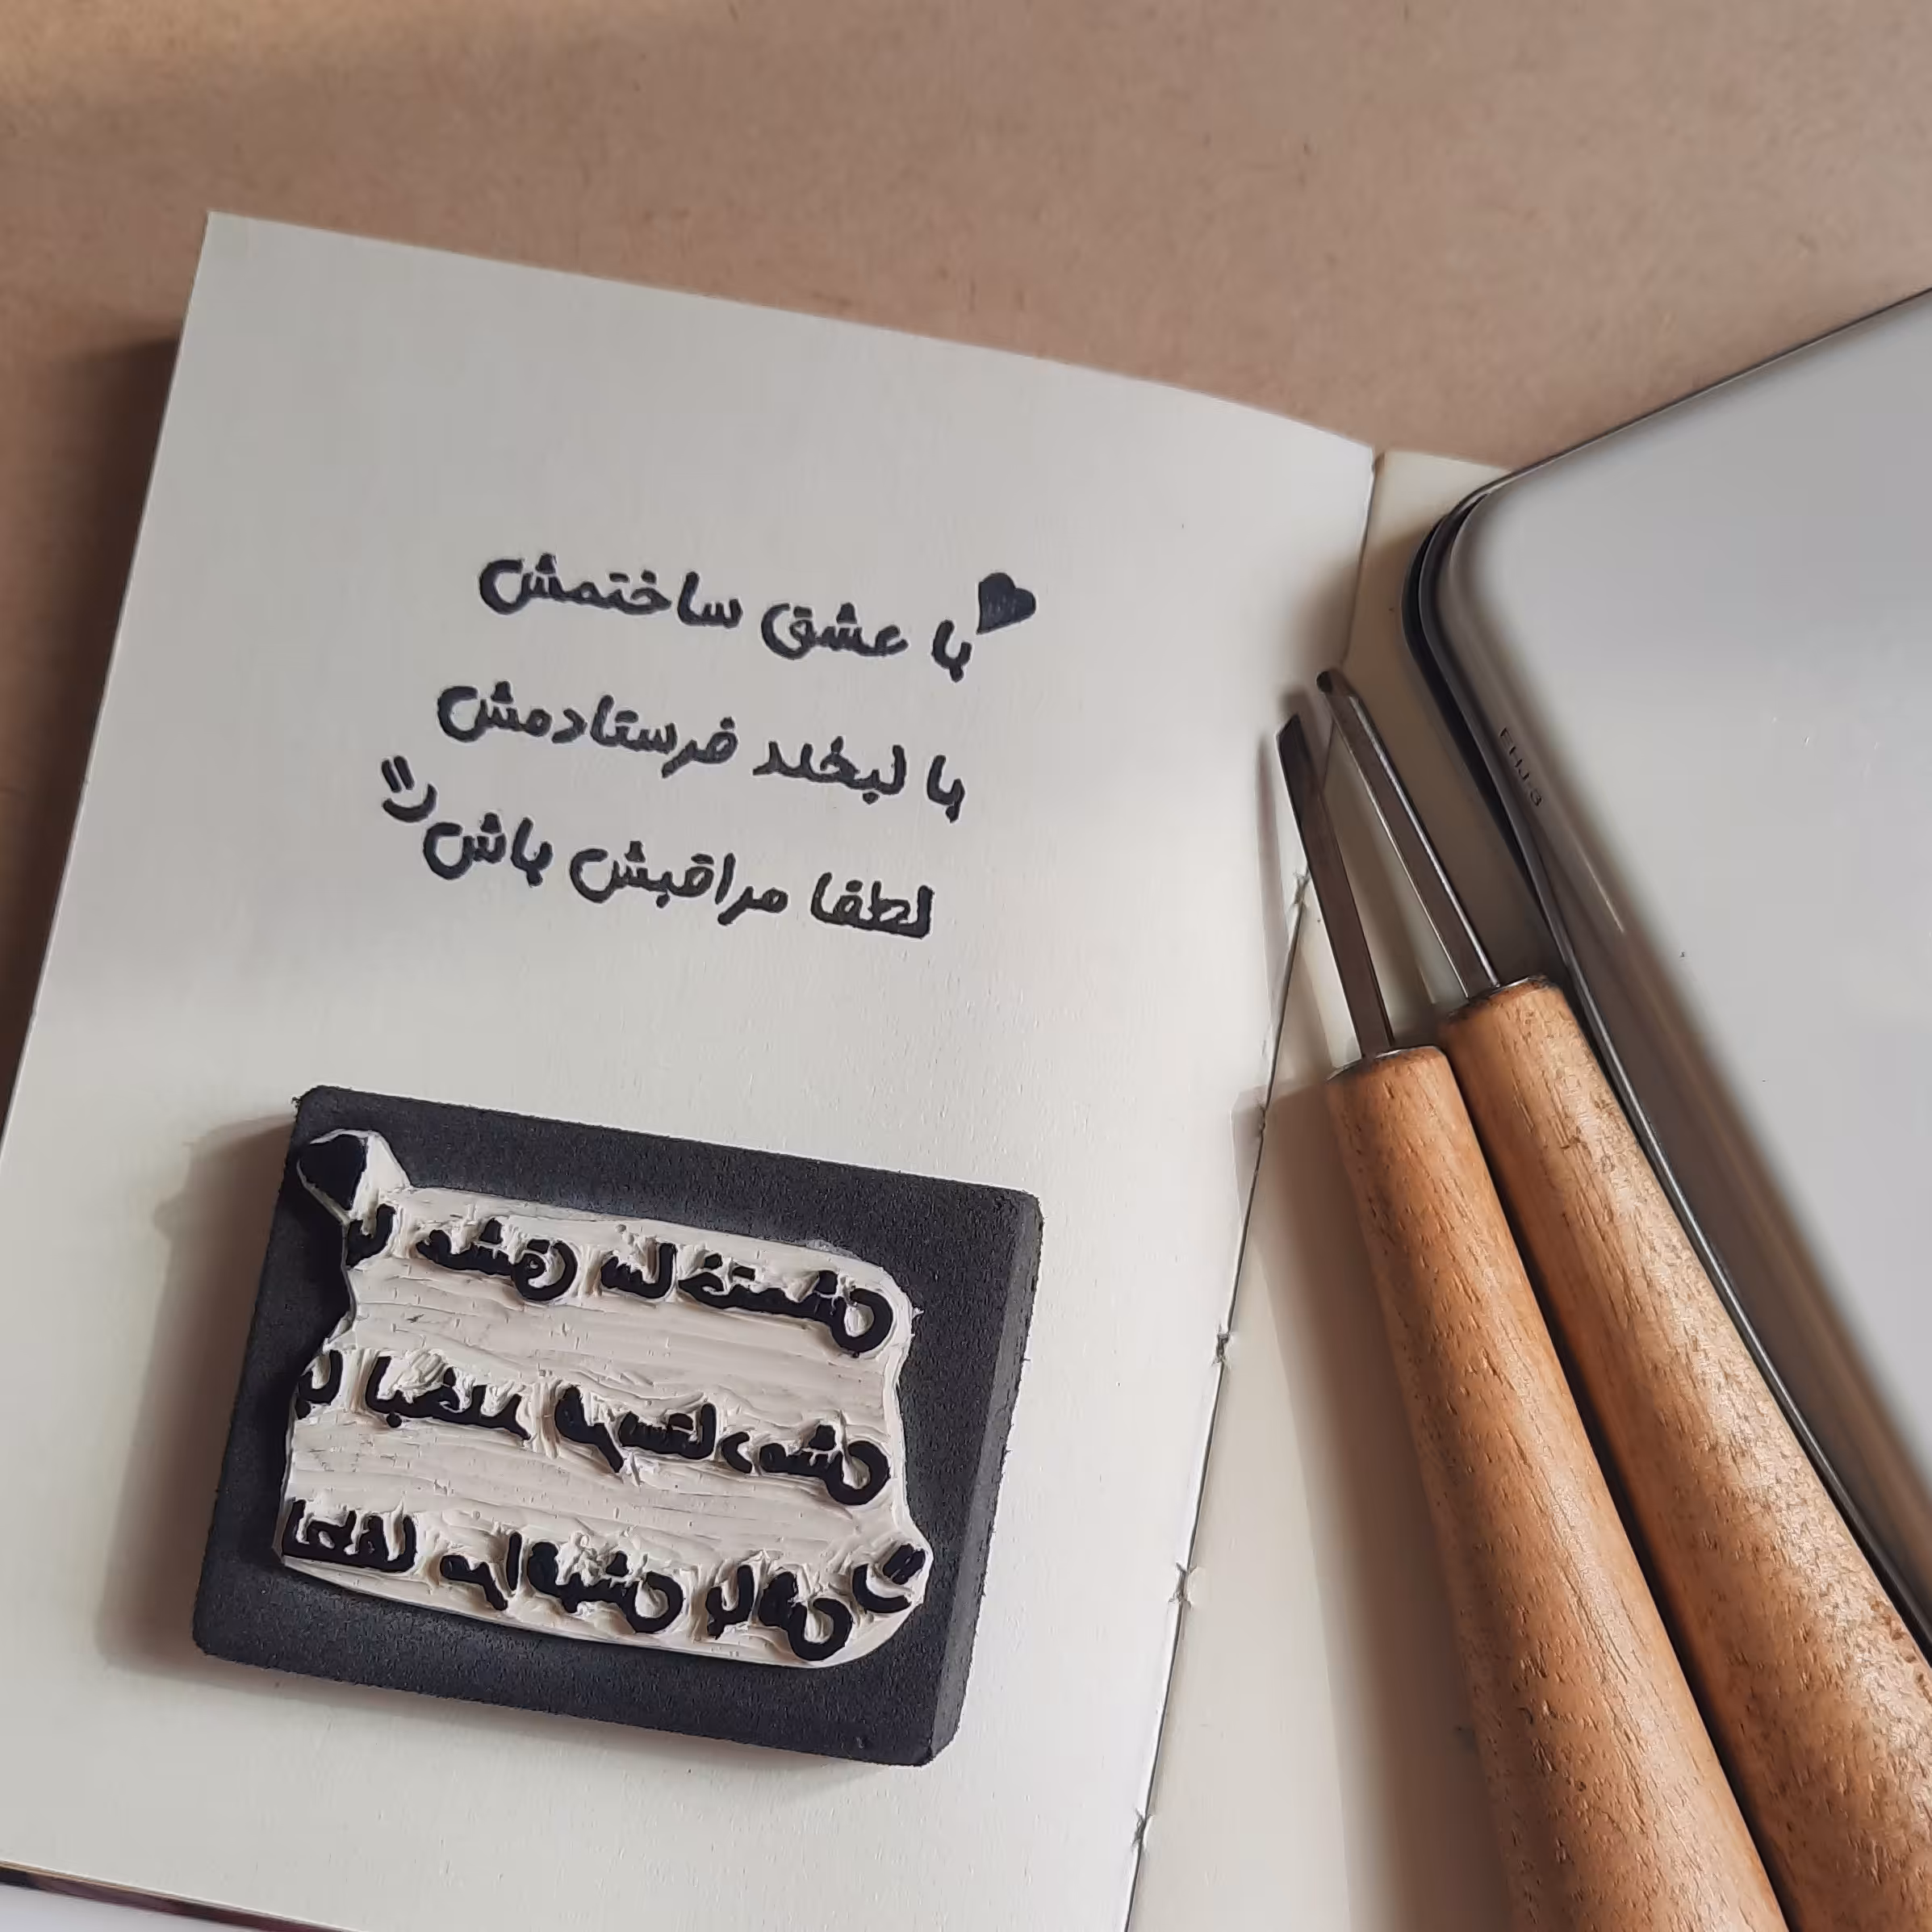 با عشق ساختمش
با لبخند فرستادمش
لطفا مراقبش باش